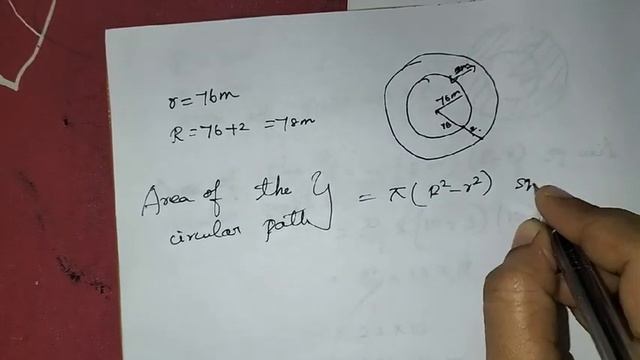 r = 76m
R = 76+2 = 78m
76m
76
2
Area of the } = π(R²-r²) sq
circular path